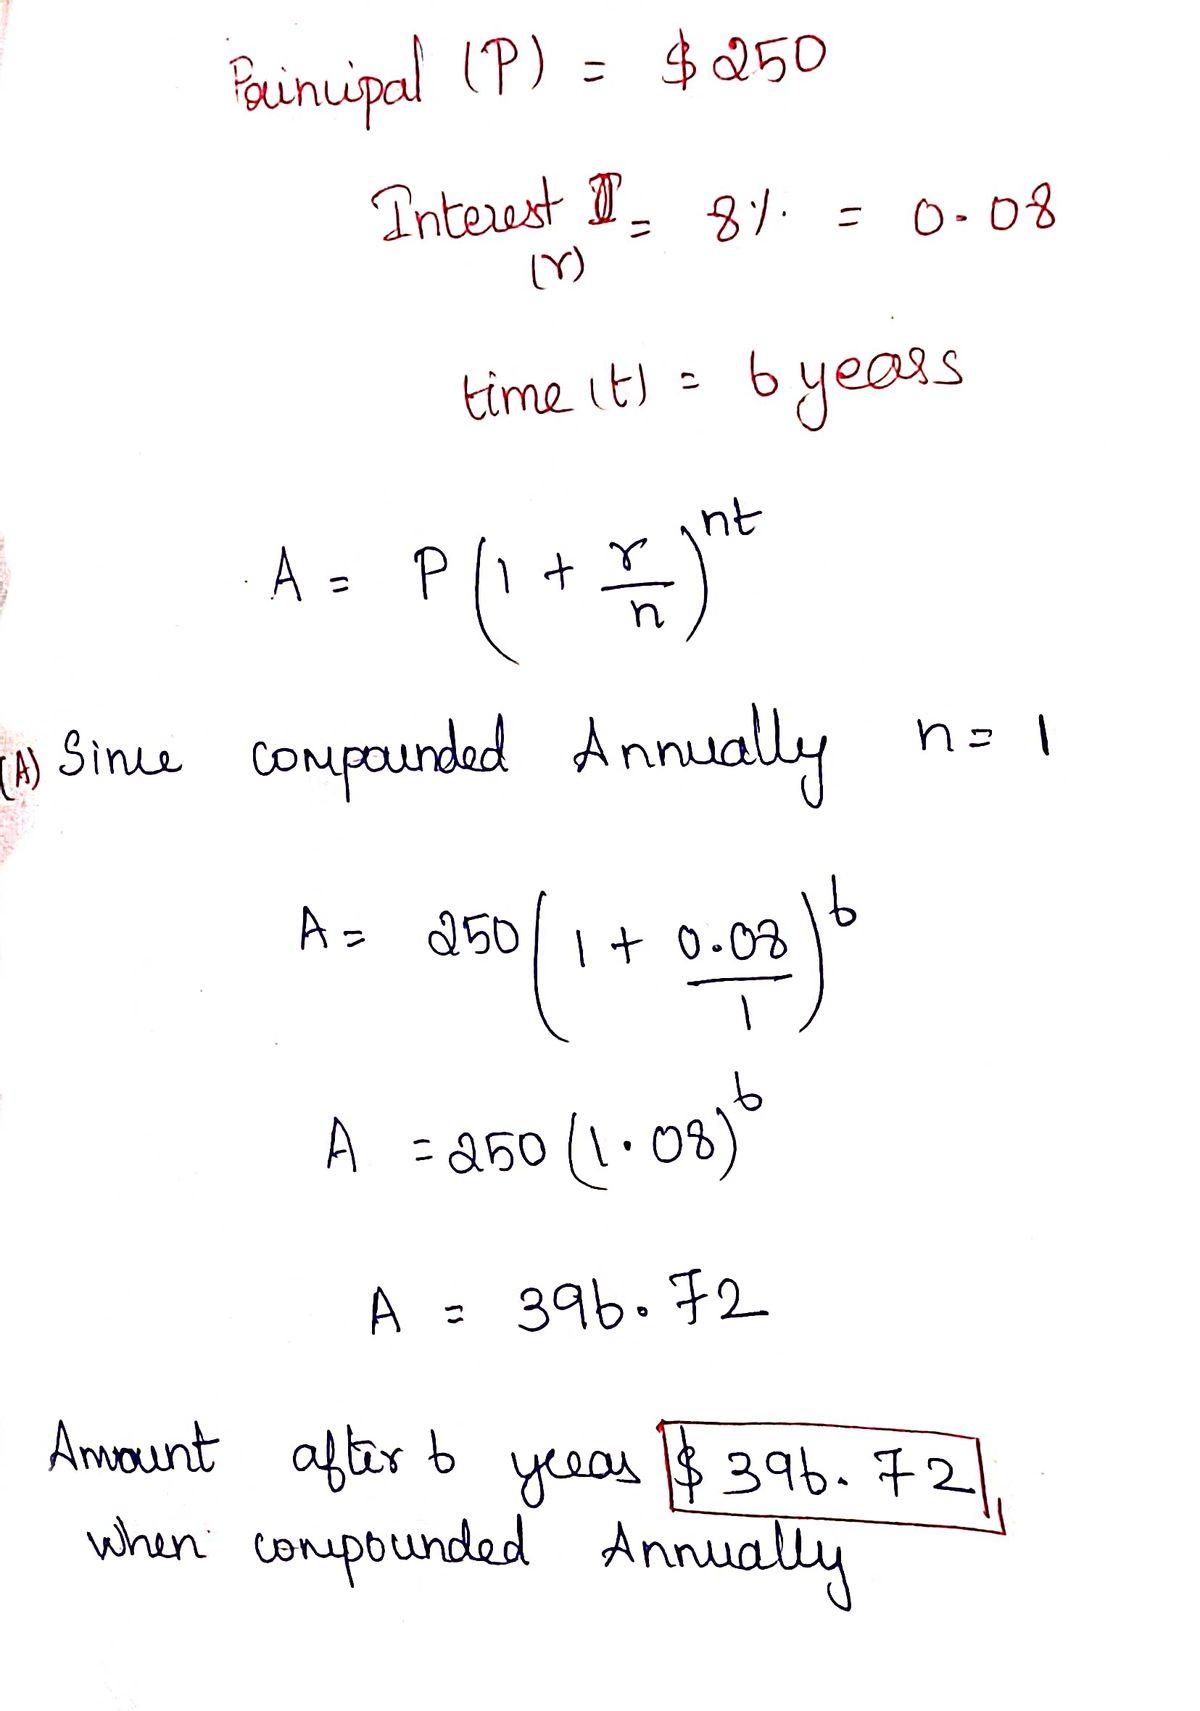 Principal (P) = $250
Interest I = 8% = 0.08
(r)
time (t) = 6 years
A = P(1 + r/n)^nt
(A) Since compounded Annually n = 1
A = 250(1 + 0.08/1)^6
A = 250(1.08)^6
A = 396.72
Amount after 6 years $396.72
when compounded Annually